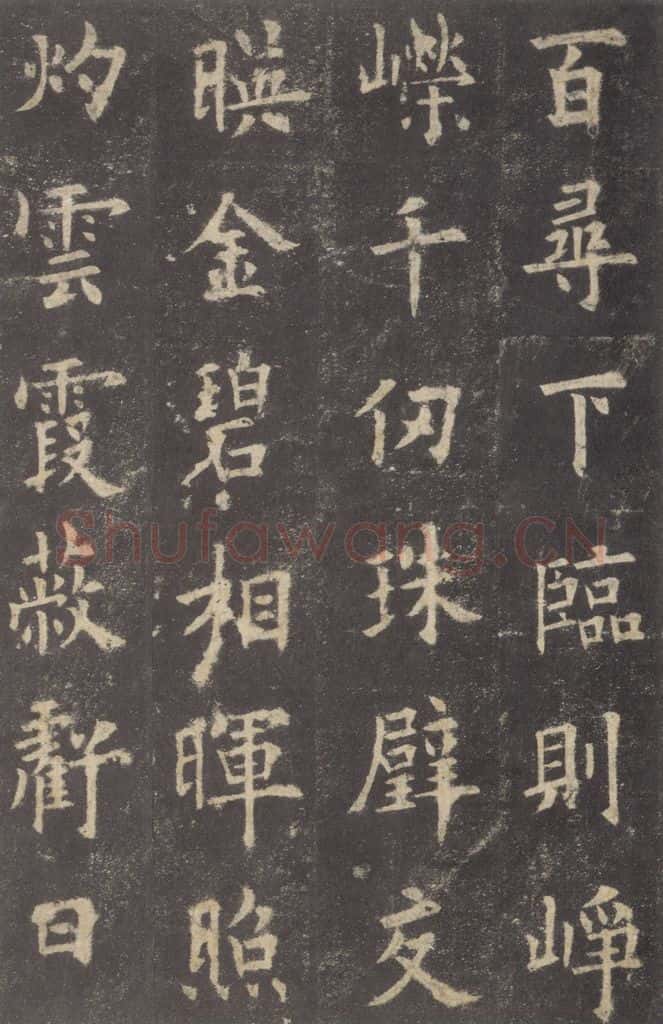 百尋下臨則崢
嶸千仞珠璧交
暎金碧相暉照
灼雲霞蔽虧日
Shufawang.CN